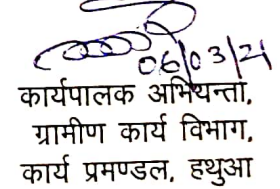 06/03/21
कार्यपालक अभियन्ता,
ग्रामीण कार्य विभाग,
कार्य प्रमण्डल, हथुआ